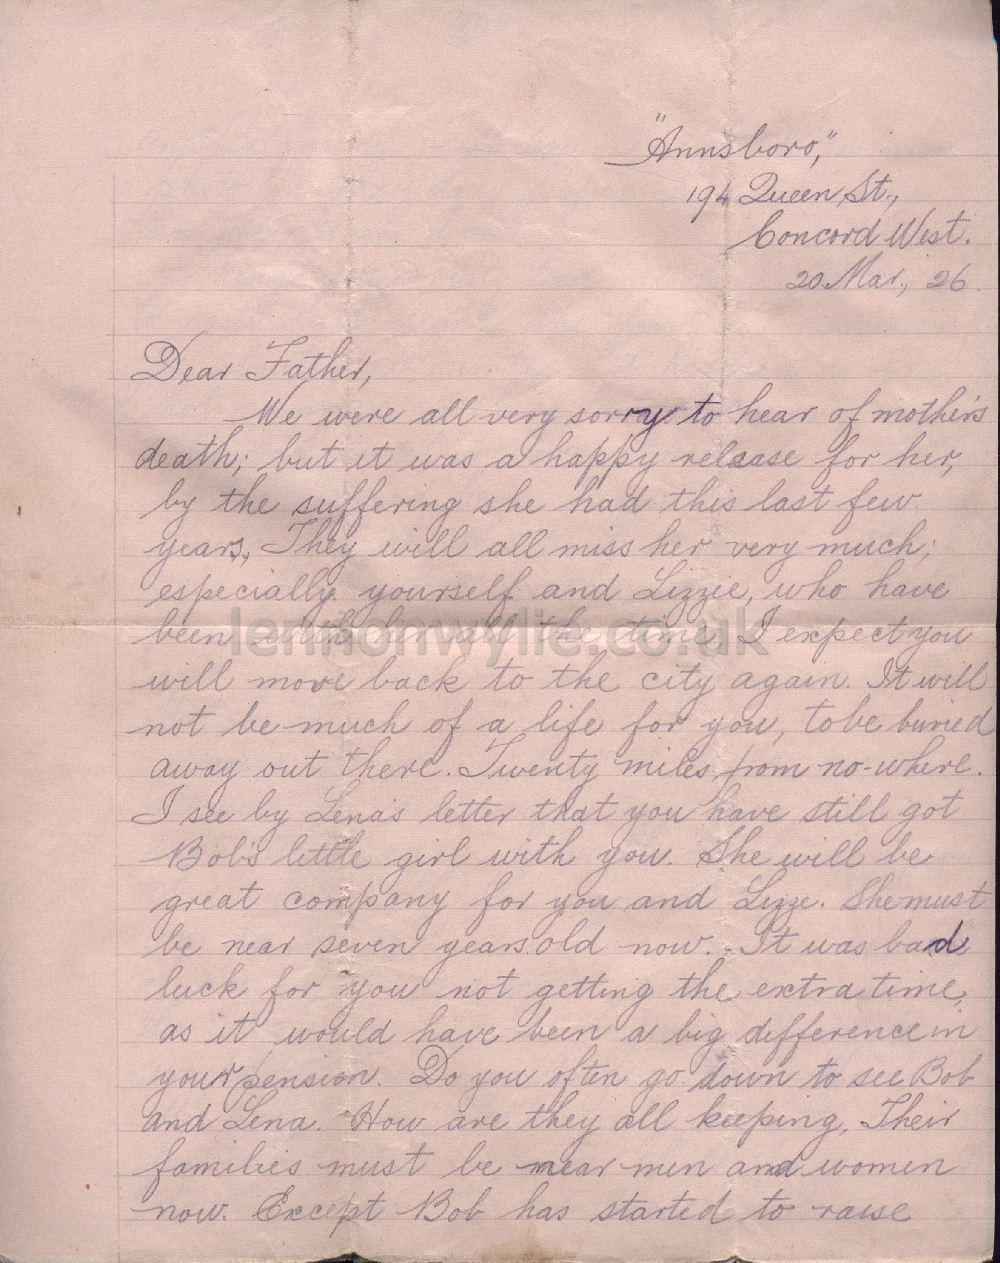 "Annsboro,"
194 Queen St.,
Concord West.
20 Mar., 26.
Dear Father,
We were all very sorry to hear of mother's
death; but it was a happy release for her,
by the suffering she had this last few
years, They will all miss her very much;
especially yourself and Lizzie, who have
been with her all the time. I expect you
will move back to the city again. It will
not be much of a life for you, to be buried
away out there. Twenty miles from no-where.
I see by Lena's letter that you have still got
Bob's little girl with you. She will be
great company for you and Lizze. She must
be near seven years old now. It was bad
luck for you not getting the extra time,
as it would have been a big difference in
your pension. Do you often go down to see Bob
and Lena. How are they all keeping, Their
families must be near men and women
now. Except Bob has started to raise
lennonwylie.co.uk